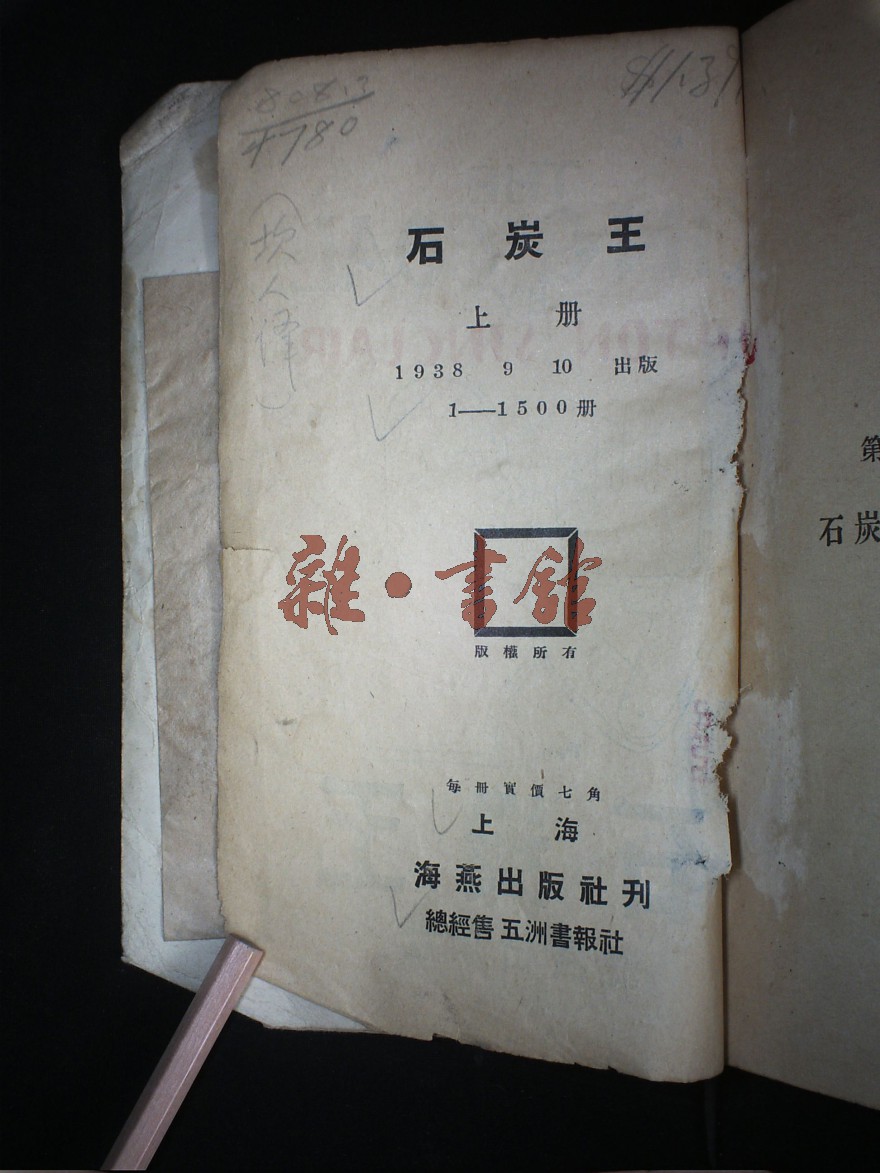 808.3
4780
(坎人译)
石炭王
上册
1938 9 10 出版
1——1500册
雜·書館
版權所有
每冊實價七角
上海
海燕出版社刊
總經售 五洲書報社
第
石炭